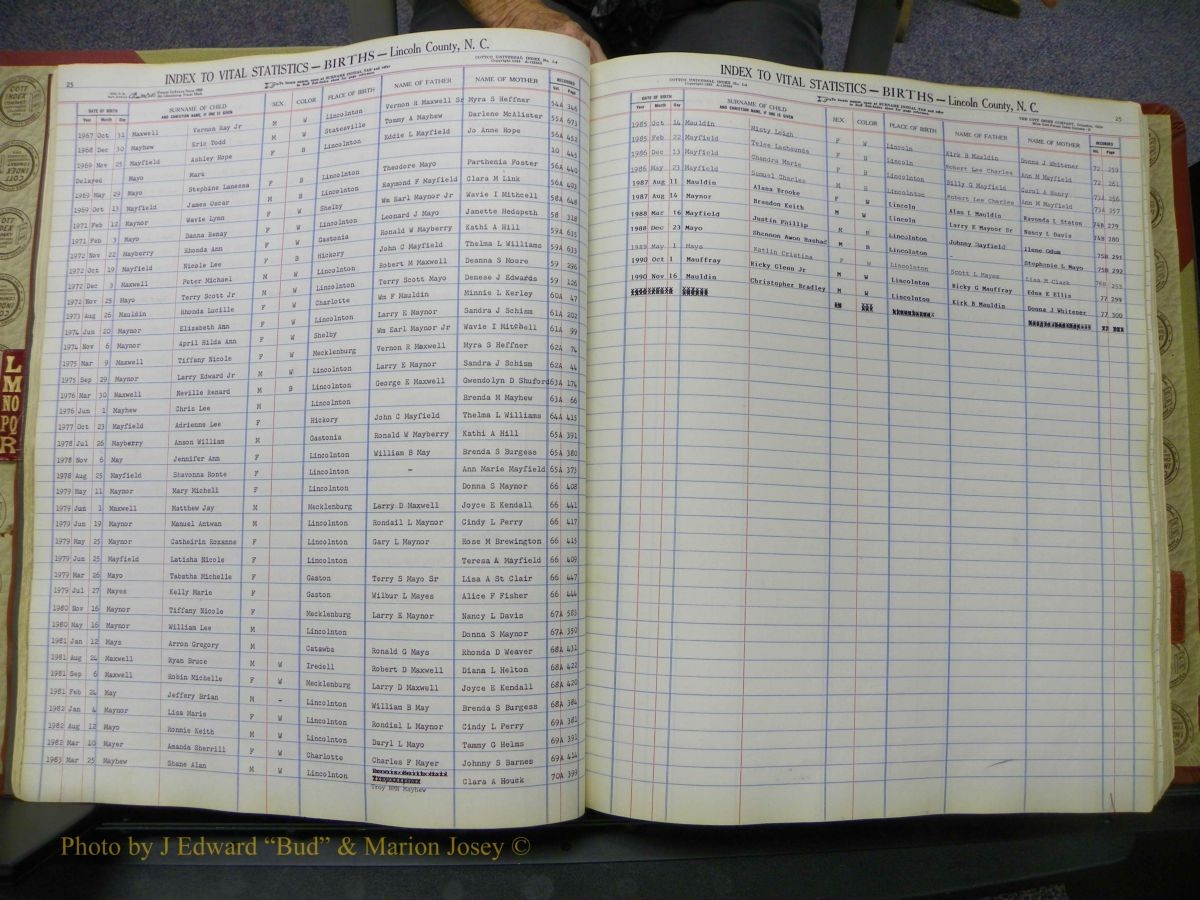 25
INDEX TO VITAL STATISTICS — BIRTHS — Lincoln County, N. C.
DATE OF BIRTH SURNAME OF CHILD SEX COLOR PLACE OF BIRTH NAME OF FATHER NAME OF MOTHER RECORDED
Year Month Day AND CHRISTIAN NAME, IF ONE IS GIVEN Vol. Page
1967 Oct 31 Maxwell Vernon Ray Jr M W Lincolnton Vernon R Maxwell Sr Myra S Heffner 54A 346
1968 Dec 30 Mayhew Eric Todd M W Statesville Tommy A Mayhew Darlene McAlister 55A 673
1969 Nov 25 Mayfield Ashley Hope F B Lincolnton Eddie L Mayfield Jo Anne Hope 56A 452
Delayed Mayo Mara Theodore Mayo Parthenia Foster 10 445
1969 May 29 Mayo Stephine Lanessa F B Lincolnton Raymond F Mayfield Clara M Link 56A 440
1969 Oct 13 Mayfield James Oscar M B Lincolnton Wm Earl Maynor Jr Wavie I Mithcell 56A 403
1971 Feb 12 Maynor Wavie Lynn F W Shelby Leonard J Mayo Janette Hedspeth 58A 648
1971 Feb 3 Mayo Danna Renay F B Lincolnton Ronald W Mayberry Kathi A Hill 58 318
1972 Nov 22 Mayberry Rhonda Ann F W Gastonia John C Mayfield Thelma L Williams 59A 635
1972 Oct 19 Mayfield Nicole Lee F B Hickory Robert M Maxwell Deanna S Moore 59A 633
1972 Dec 3 Maxwell Peter Michael M W Lincolnton Terry Scott Mayo Denese J Edwards 59 296
1972 Nov 25 Mayo Terry Scott Jr M W Lincolnton Wm F Mauldin Minnie L Kerley 59 126
1973 Aug 26 Mauldin Rhonda Lucille F W Charlotte Larry E Maynor Sandra J Schism 60A 47
1974 Jun 20 Maynor Elizabeth Ann F W Lincolnton Wm Earl Maynor Jr Wavie I Mitchell 61A 202
1974 Nov 6 Maynor April Hilda Ann F W Shelby Vernon R Maxwell Myra S Heffner 61A 99
1975 Mar 9 Maxwell Tiffany Nicole F W Mecklenburg Larry E Maynor Sandra J Schism 62A 74
1975 Sep 29 Maynor Larry Edward Jr M W Lincolnton George E Maxwell Gwendolyn D Shuford 62A 44
1976 Mar 30 Maxwell Neville Renard M B Lincolnton Brenda M Mayhew 63A 174
1976 Jun 1 Mayhew Chris Lee M Lincolnton John C Mayfield Thelma L Williams 63A 66
1977 Oct 23 Mayfield Adrienne Lee F Hickory Ronald W Mayberry Kathi A Hill 64A 415
1978 Jul 26 Mayberry Anson William M Gastonia William B May Brenda S Burgess 65A 391
1978 Nov 6 May Jennifer Ann F Lincolnton - Ann Marie Mayfield 65A 380
1978 Aug 25 Mayfield Shavonna Ronte F Lincolnton Donna S Maynor 65A 373
1979 May 11 Maynor Mary Michell F Lincolnton 66 408
1979 Jun 1 Maxwell Matthew Jay M Mecklenburg Larry D Maxwell Joyce E Kendall 66 441
1979 Jun 19 Maynor Manuel Antwan M Lincolnton Rondail L Maynor Cindy L Perry 66 417
1979 May 25 Maynor Catheirin Roxanne F Lincolnton Gary L Maynor Rose M Brewington 66 415
1979 Jun 25 Mayfield Latisha Nicole F Lincolnton Teresa A Mayfield 66 409
1979 Mar 26 Mayo Tabatha Michelle F Gaston Terry S Mayo Sr Lisa A St Clair 66 447
1979 Jul 27 Mayes Kelly Marie F Gaston Wilbur L Mayes Alice F Fisher 66 444
1980 Nov 16 Maynor Tiffany Nicole F Mecklenburg Larry E Maynor Nancy L Davis 67A 583
1980 May 16 Maynor William Lee M Lincolnton Donna S Maynor 67A 350
1981 Jan 12 Mays Arron Gregory M Catawba Ronald G Mays Rhonda D Weaver 68A 431
1981 Aug 24 Maxwell Ryan Bruce M W Iredell Robert D Maxwell Diann L Helton 68A 422
1981 Sep 6 Maxwell Robin Michelle F W Mecklenburg Larry D Maxwell Joyce E Kendall 68A 420
1981 Feb 24 May Jeffery Brian M - Lincolnton William B May Brenda S Burgess 68A 384
1982 Jan 4 Maynor Lisa Marie F W Lincolnton Rondial L Maynor Cindy L Perry 69A 381
1982 Aug 12 Mayo Ronnie Keith M W Lincolnton Daryl L Mayo Tammy G Helms 69A 391
1982 Mar 10 Mayer Amanda Sherrill F W Charlotte Charles F Mayer Johnny S Barnes 69A 454
1983 Mar 25 Mayhew Shane Alan M W Lincolnton Clara A Houck 70A 399
Troy Mayhew
INDEX TO VITAL STATISTICS — BIRTHS — Lincoln County, N. C.
25
DATE OF BIRTH SURNAME OF CHILD SEX COLOR PLACE OF BIRTH NAME OF FATHER NAME OF MOTHER RECORDED
Year Month Day AND CHRISTIAN NAME, IF ONE IS GIVEN Vol. Page
1985 Oct 14 Mauldin Misty Leigh F W Lincoln Kirk B Mauldin Donna J Whitener 72 259
1985 Feb 22 Mayfield Telee Lashaunda F B Lincoln Robert Lee Charles Ann M Mayfield 72 261
1986 Dec 13 Mayfield Chandra Marie F B Lincolnton Billy G Mayfield Carol A Henry 73A 256
1986 May 23 Mayfield Samuel Charles M B Lincolnton Robert Lee Charles Ann M Mayfield 73A 257
1987 Aug 11 Mauldin Alana Brooke F W Lincoln Alan L Mauldin Ravonda L Staton 74B 279
1987 Aug 14 Maynor Brandon Keith M W Lincoln Larry E Maynor Sr Nancy L Davis 74B 280
1988 Mar 16 Mayfield Justin Phillip M Lincolnton Johnny Mayfield Ilene Odum 75B 291
1988 Dec 23 Mayo Shennon Awon Rashad M B Lincolnton - Stephanie L Mayo 75B 292
1989 May 1 Mayo Katlin Cristina F W Lincolnton Scott L Mayes Lisa M Clark
1990 Oct 1 Mauffray Ricky Glenn Jr M W Lincolnton Ricky G Mauffray Edna K Ellis 77 299
1990 Nov 16 Mauldin Christopher Bradley M W Lincolnton Kirk B Mauldin Donna J Whitener 77 300
L
M
NO
PQ
R
Photo by J Edward “Bud” & Marion Josey ©